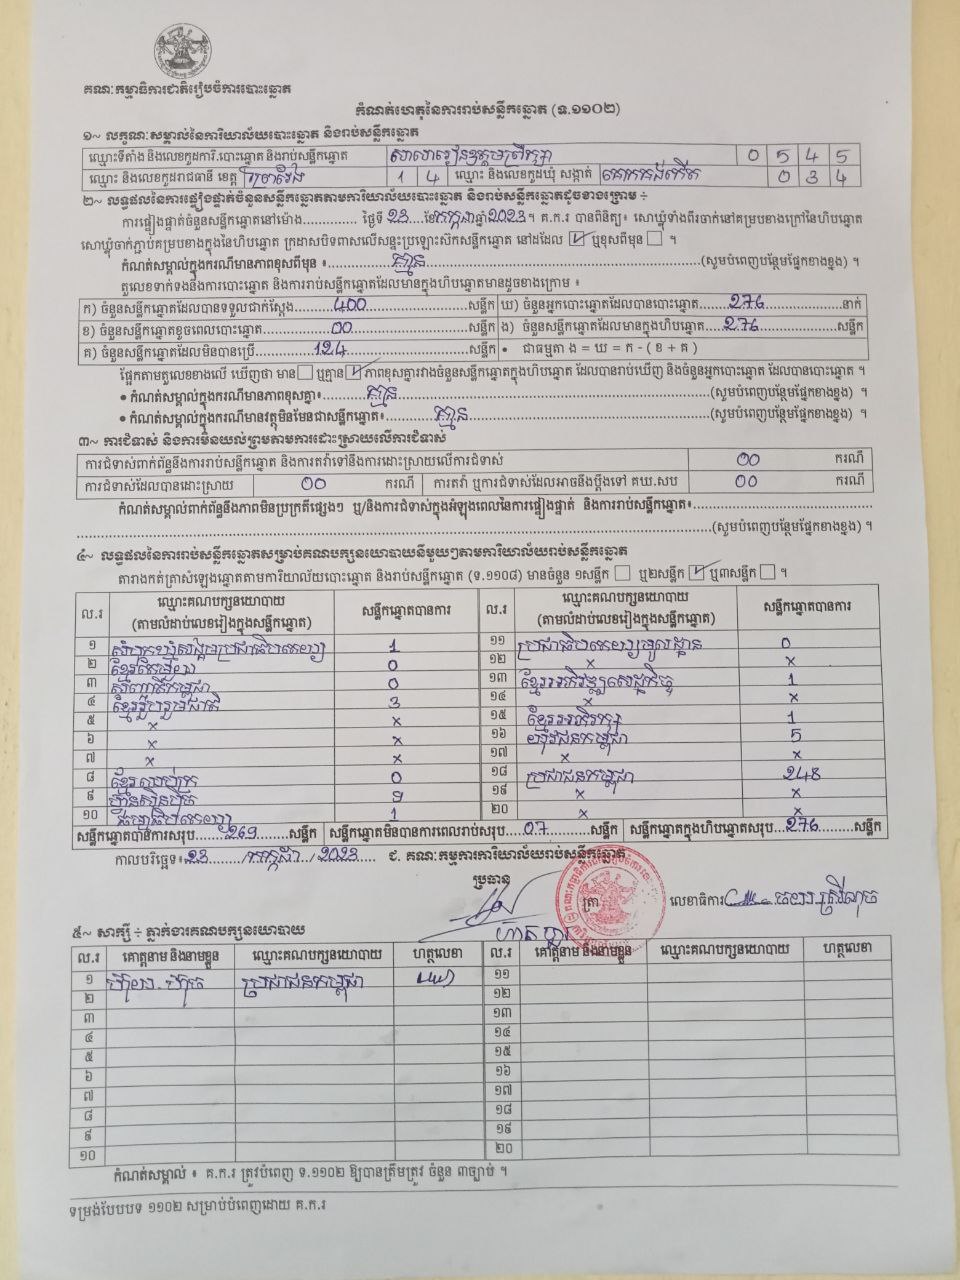 គណៈកម្មាធិការជាតិរៀបចំការបោះឆ្នោត
កំណត់ហេតុនៃការរាប់សន្លឹកឆ្នោត (ទ.១១០២)
១~ លក្ខណៈសម្គាល់នៃការិយាល័យបោះឆ្នោត និងរាប់សន្លឹកឆ្នោត
ឈ្មោះទីតាំង និងលេខកូដការិ.បោះឆ្នោត និងរាប់សន្លឹកឆ្នោត សាលារៀន 0 5 4 5
ឈ្មោះ និងលេខកូដរាជធានី ខេត្ត ព្រៃវែង 1 4 ឈ្មោះ និងលេខកូដឃុំ សង្កាត់ គោកគង់កើត 0 3 4
២~ លទ្ធផលនៃការផ្ទៀងផ្ទាត់ចំនួនសន្លឹកឆ្នោតតាមការិយាល័យបោះឆ្នោត និងរាប់សន្លឹកឆ្នោតដូចខាងក្រោម ÷
ការផ្ទៀងផ្ទាត់ចំនួនសន្លឹកឆ្នោតនៅម៉ោង............. ថ្ងៃទី 23 ខែ កក្កដា ឆ្នាំ 2023 ។ គ.ក.រ បានពិនិត្យ៖ សោឃ្មុំទាំងពីរចាក់នៅគម្របខាងក្រៅនៃហិបឆ្នោត
សោឃ្មុំចាក់ភ្ជាប់គម្របខាងក្នុងនៃហិបឆ្នោត ក្រដាសបិទពាសលើសន្ទះប្រឡោះស៊កសន្លឹកឆ្នោត នៅដដែល ☑ ឬខុសពីមុន ☐ ។
កំណត់សម្គាល់ក្នុងករណីមានភាពខុសពីមុន ៖ គ្មាន (សូមបំពេញបន្ថែមផ្នែកខាងខ្នង) ។
តួលេខទាក់ទងនឹងការបោះឆ្នោត និងការរាប់សន្លឹកឆ្នោតដែលមានក្នុងហិបឆ្នោតមានដូចខាងក្រោម ៖
ក) ចំនួនសន្លឹកឆ្នោតដែលបានទទួលជាក់ស្តែង 400 សន្លឹក ឃ) ចំនួនអ្នកបោះឆ្នោតដែលបានបោះឆ្នោត 276 នាក់
ខ) ចំនួនសន្លឹកឆ្នោតខូចពេលបោះឆ្នោត 00 សន្លឹក ង) ចំនួនសន្លឹកឆ្នោតដែលមានក្នុងហិបឆ្នោត 276 សន្លឹក
គ) ចំនួនសន្លឹកឆ្នោតដែលមិនបានប្រើ 124 សន្លឹក • ជាធម្មតា ង = ឃ = ក - ( ខ + គ )
ផ្អែកតាមតួលេខខាងលើ ឃើញថា មាន ☐ ឬគ្មាន ☑ ភាពខុសគ្នារវាងចំនួនសន្លឹកឆ្នោតក្នុងហិបឆ្នោត ដែលបានរាប់ឃើញ និងចំនួនអ្នកបោះឆ្នោត ដែលបានបោះឆ្នោត ។
• កំណត់សម្គាល់ក្នុងករណីមានភាពខុសគ្នា៖ គ្មាន (សូមបំពេញបន្ថែមផ្នែកខាងខ្នង) ។
• កំណត់សម្គាល់ក្នុងករណីមានវត្ថុមិនមែនជាសន្លឹកឆ្នោត៖ គ្មាន (សូមបំពេញបន្ថែមផ្នែកខាងខ្នង) ។
៣~ ការជំទាស់ និងការមិនយល់ព្រមតាមការដោះស្រាយលើការជំទាស់
ការជំទាស់ពាក់ព័ន្ធនឹងការរាប់សន្លឹកឆ្នោត និងការតវ៉ាទៅនឹងការដោះស្រាយលើការជំទាស់ 00 ករណី
ការជំទាស់ដែលបានដោះស្រាយ 00 ករណី ការតវ៉ា ឬការជំទាស់ដែលអាចនឹងប្តឹងទៅ គឃ.សប 00 ករណី
កំណត់សម្គាល់ពាក់ព័ន្ធនឹងភាពមិនប្រក្រតីផ្សេងៗ ឬ/និងការជំទាស់ក្នុងអំឡុងពេលនៃការផ្ទៀងផ្ទាត់ និងការរាប់សន្លឹកឆ្នោត៖
(សូមបំពេញបន្ថែមផ្នែកខាងខ្នង) ។
៤~ លទ្ធផលនៃការរាប់សន្លឹកឆ្នោតសម្រាប់គណបក្សនយោបាយនីមួយៗតាមការិយាល័យរាប់សន្លឹកឆ្នោត
តារាងកត់ត្រាសំឡេងឆ្នោតតាមការិយាល័យបោះឆ្នោត និងរាប់សន្លឹកឆ្នោត (ទ.១១០៨) មានចំនួន ១សន្លឹក ☐ ឬ២សន្លឹក ☑ ឬ៣សន្លឹក ☐ ។
ល.រ ឈ្មោះគណបក្សនយោបាយ (តាមលំដាប់លេខរៀងក្នុងសន្លឹកឆ្នោត) សន្លឹកឆ្នោតបានការ ល.រ ឈ្មោះគណបក្សនយោបាយ (តាមលំដាប់លេខរៀងក្នុងសន្លឹកឆ្នោត) សន្លឹកឆ្នោតបានការ
១ សំបុកឃ្មុំសង្គមប្រជាធិបតេយ្យ 1 ១១ ប្រជាធិបតេយ្យមូលដ្ឋាន 0
២ ខ្មែរតែមួយ 0 ១២ x x
៣ សញ្ជាតិកម្ពុជា 0 ១៣ ខ្មែរអភិវឌ្ឍសេដ្ឋកិច្ច 1
៤ ខ្មែររួបរួមជាតិ 3 ១៤ x x
៥ x x ១៥ ខ្មែរអភិរក្ស 1
៦ x x ១៦ យុវជនកម្ពុជា 5
៧ x x ១៧ x x
៨ ខ្មែរឈប់ក្រ 0 ១៨ ប្រជាជនកម្ពុជា 248
៩ ហ្វ៊ុនស៊ិនប៉ិច 9 ១៩ x x
១០ ធម្មាធិបតេយ្យ 1 ២០ x
សន្លឹកឆ្នោតបានការសរុប 269 សន្លឹក សន្លឹកឆ្នោតមិនបានការពេលរាប់សរុប 07 សន្លឹក សន្លឹកឆ្នោតក្នុងហិបឆ្នោតសរុប 276 សន្លឹក
កាលបរិច្ឆេទ៖ 23 / កក្កដា / 2023 ជ. គណៈកម្មការការិយាល័យរាប់សន្លឹកឆ្នោត
ប្រធាន ត្រា លេខាធិការ
៥~ សាក្សី ÷ ភ្នាក់ងារគណបក្សនយោបាយ
ល.រ គោត្តនាម និងនាមខ្លួន ឈ្មោះគណបក្សនយោបាយ ហត្ថលេខា ល.រ គោត្តនាម និងនាមខ្លួន ឈ្មោះគណបក្សនយោបាយ ហត្ថលេខា
១ ប្រជាជនកម្ពុជា ១១
២ ១២
៣ ១៣
៤ ១៤
៥ ១៥
៦ ១៦
៧ ១៧
៨ ១៨
៩ ១៩
១០ ២០
កំណត់សម្គាល់ ៖ គ.ក.រ ត្រូវបំពេញ ទ.១១០២ ឱ្យបានត្រឹមត្រូវ ចំនួន ៣ច្បាប់ ។
ទម្រង់បែបបទ ១១០២ សម្រាប់បំពេញដោយ គ.ក.រ